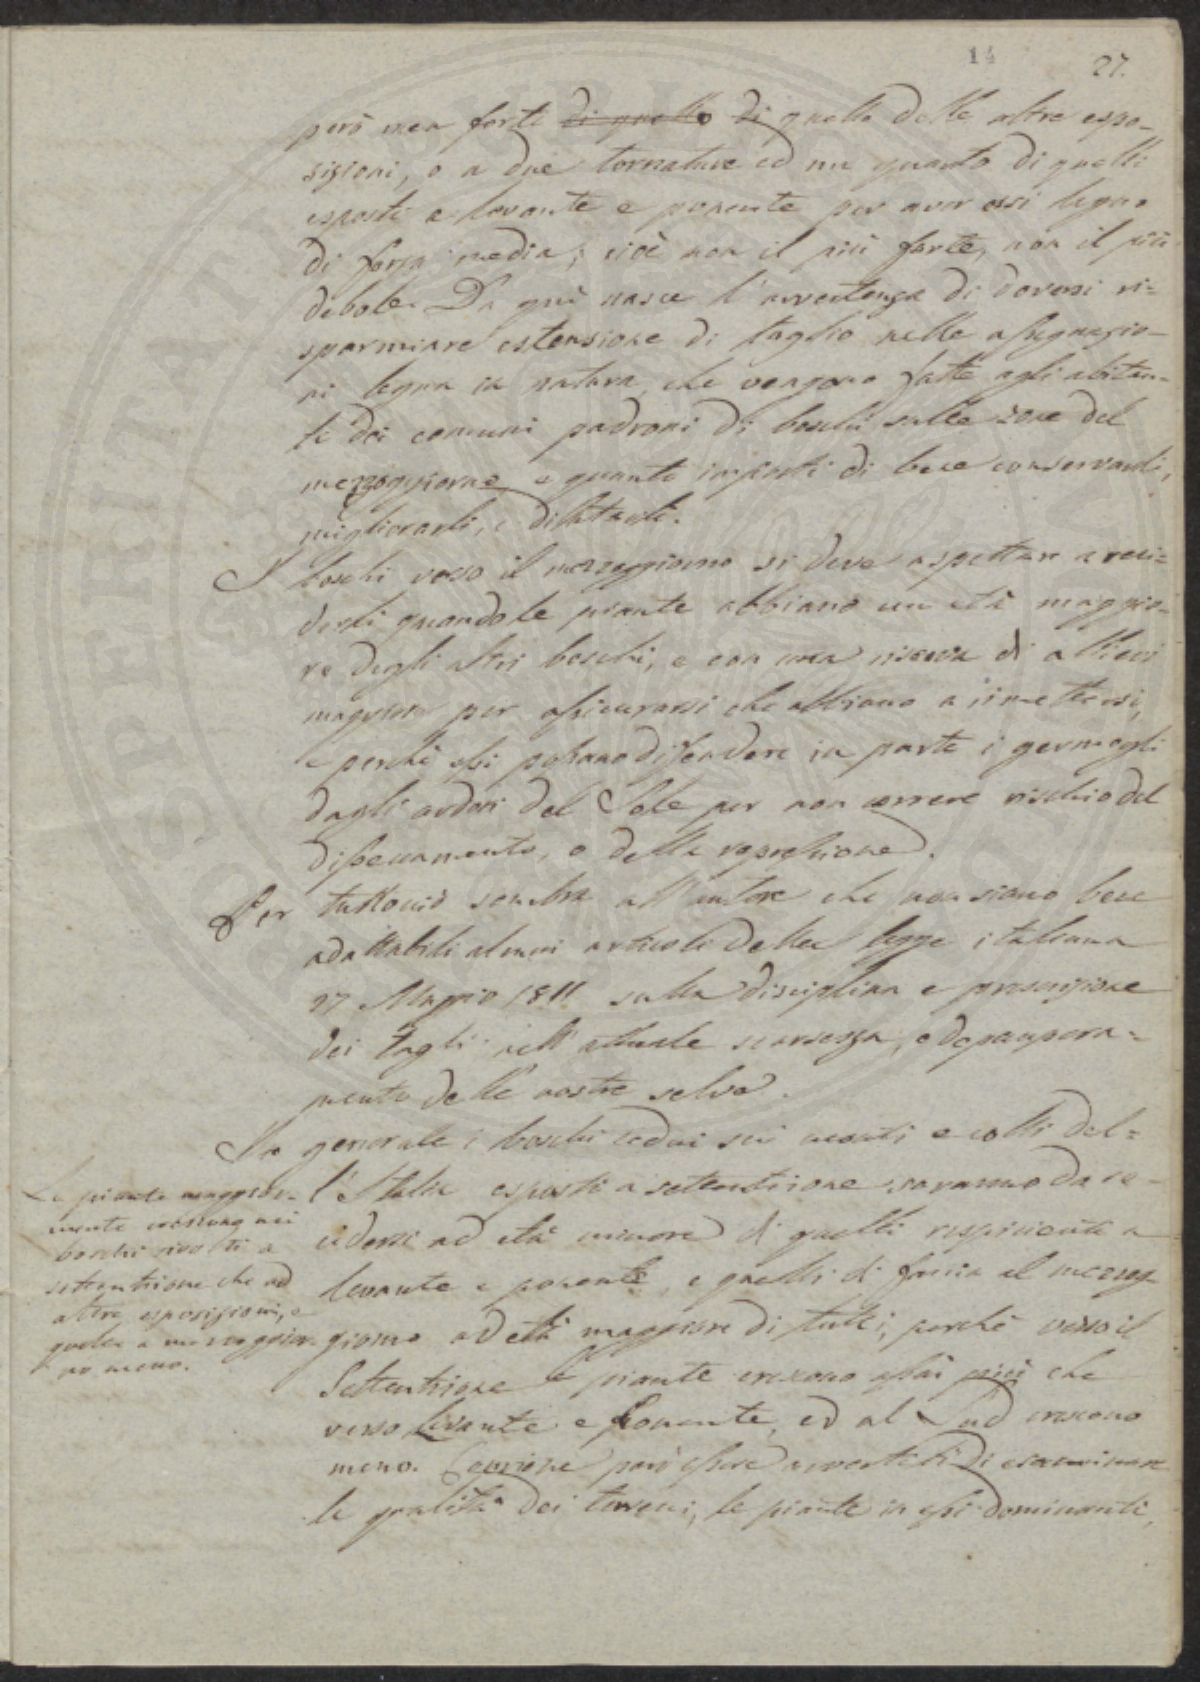 14
27.
però men forte di quello di quello delle altre espo-
sizioni, o a due tornature ed un quarto di quelli
esposti a levante e ponente per aver essi legno
di forza media; cioè non il più forte, non il più
debole. Da qui nasce l'avvertenza di doversi ri=
sparmiare estensione di taglio nelle assegnazio-
ni legna in natura che vengono fatte agli abitan-
ti dei comuni padroni di boschi sulle zone del
mezzogiorno e quanto importi di bene conservarli,
migliorarli, e dilatarli.
I boschi verso il mezzogiorno si deve aspettare a reci-
derli quando le piante abbiano un età maggio-
re degli altri boschi, e con una riserva di allievi
maggiore per assicurarsi che abbiano a rimettersi,
e perché essi possano difendere in parte i germogli
dagli ardori del Sole per non correre rischio del
disseccamento, o della
Per tuttociò sembra all'autore che non siano bene
adattabili alcuni articoli della legge italiana
27 Maggio 1811 sulla disciplina e prescrizione
dei tagli nell'attuale scarsezza, e depaupera=
mento delle nostre selve.
In generale i boschi cedui sui monti e colli del=
l'Italia esposti a settentrione saranno da re-
cidersi ad età minore di quelli respicienti a
levante e ponente, e quelli di faccia al mezzog-
giorno ad età maggiore di tutti; perchè verso il
Settentrione le piante crescono assai più che
verso Levante e Ponente, ed al Sud crescono
meno. Conviene però essere avvertiti di esaminare
le qualità dei terreni, le piante in essi dominanti,
Le piante maggior-
mente crescono nei
boschi rivolti a
settentrione che ad
altre esposizioni, e
quelle a mezzoggior-
no meno.